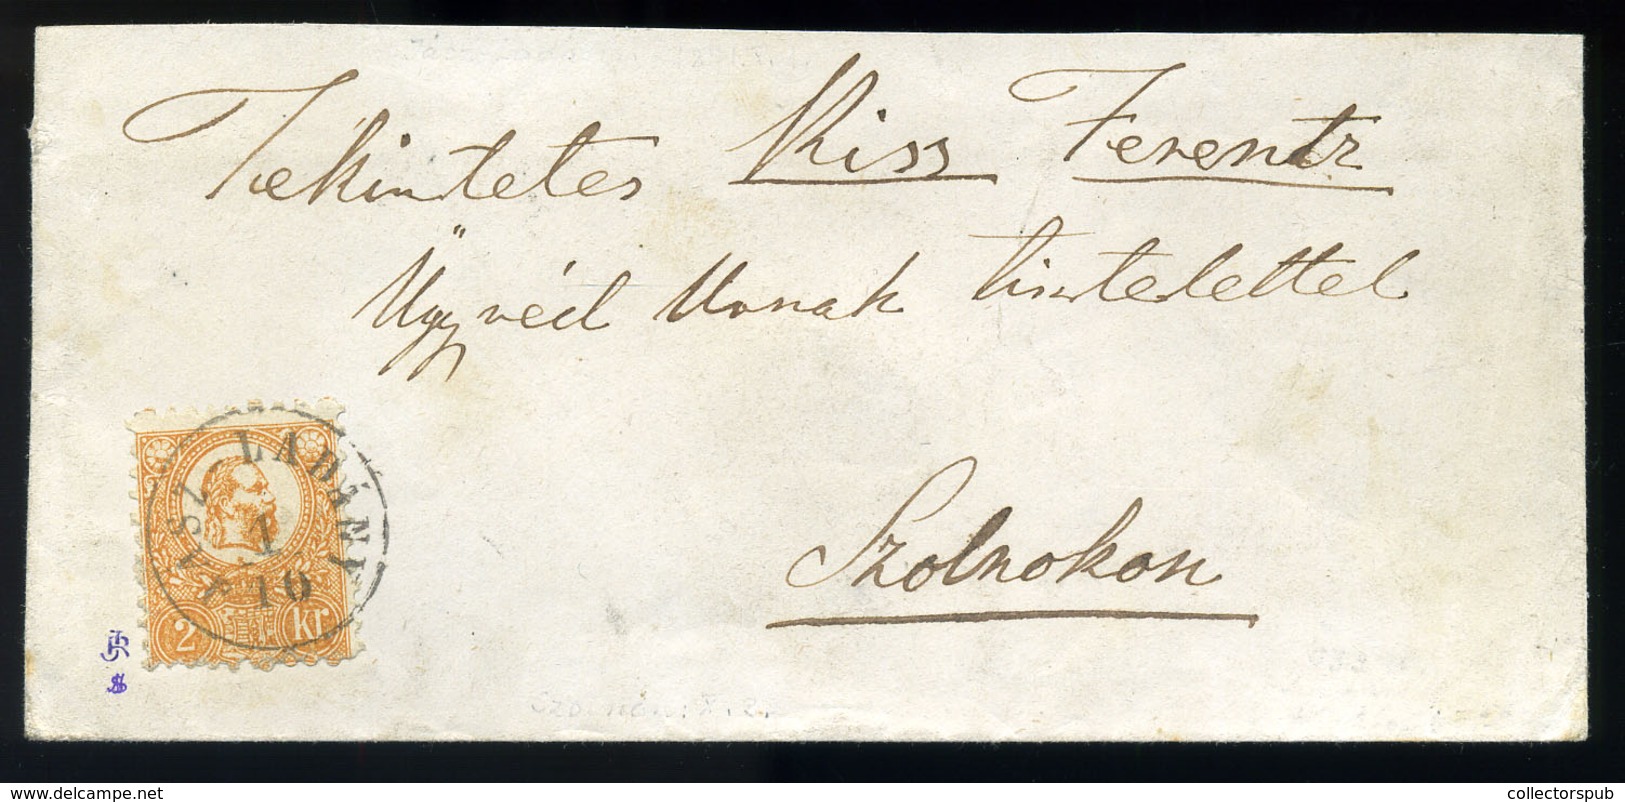 Tekintetes Kiss Ferentz
Ügyvéd Urnak tisztelettel
Szolnokon
JÁSZ LADÁNY
1
10
2 kr
www.delcampe.net
collectorspub